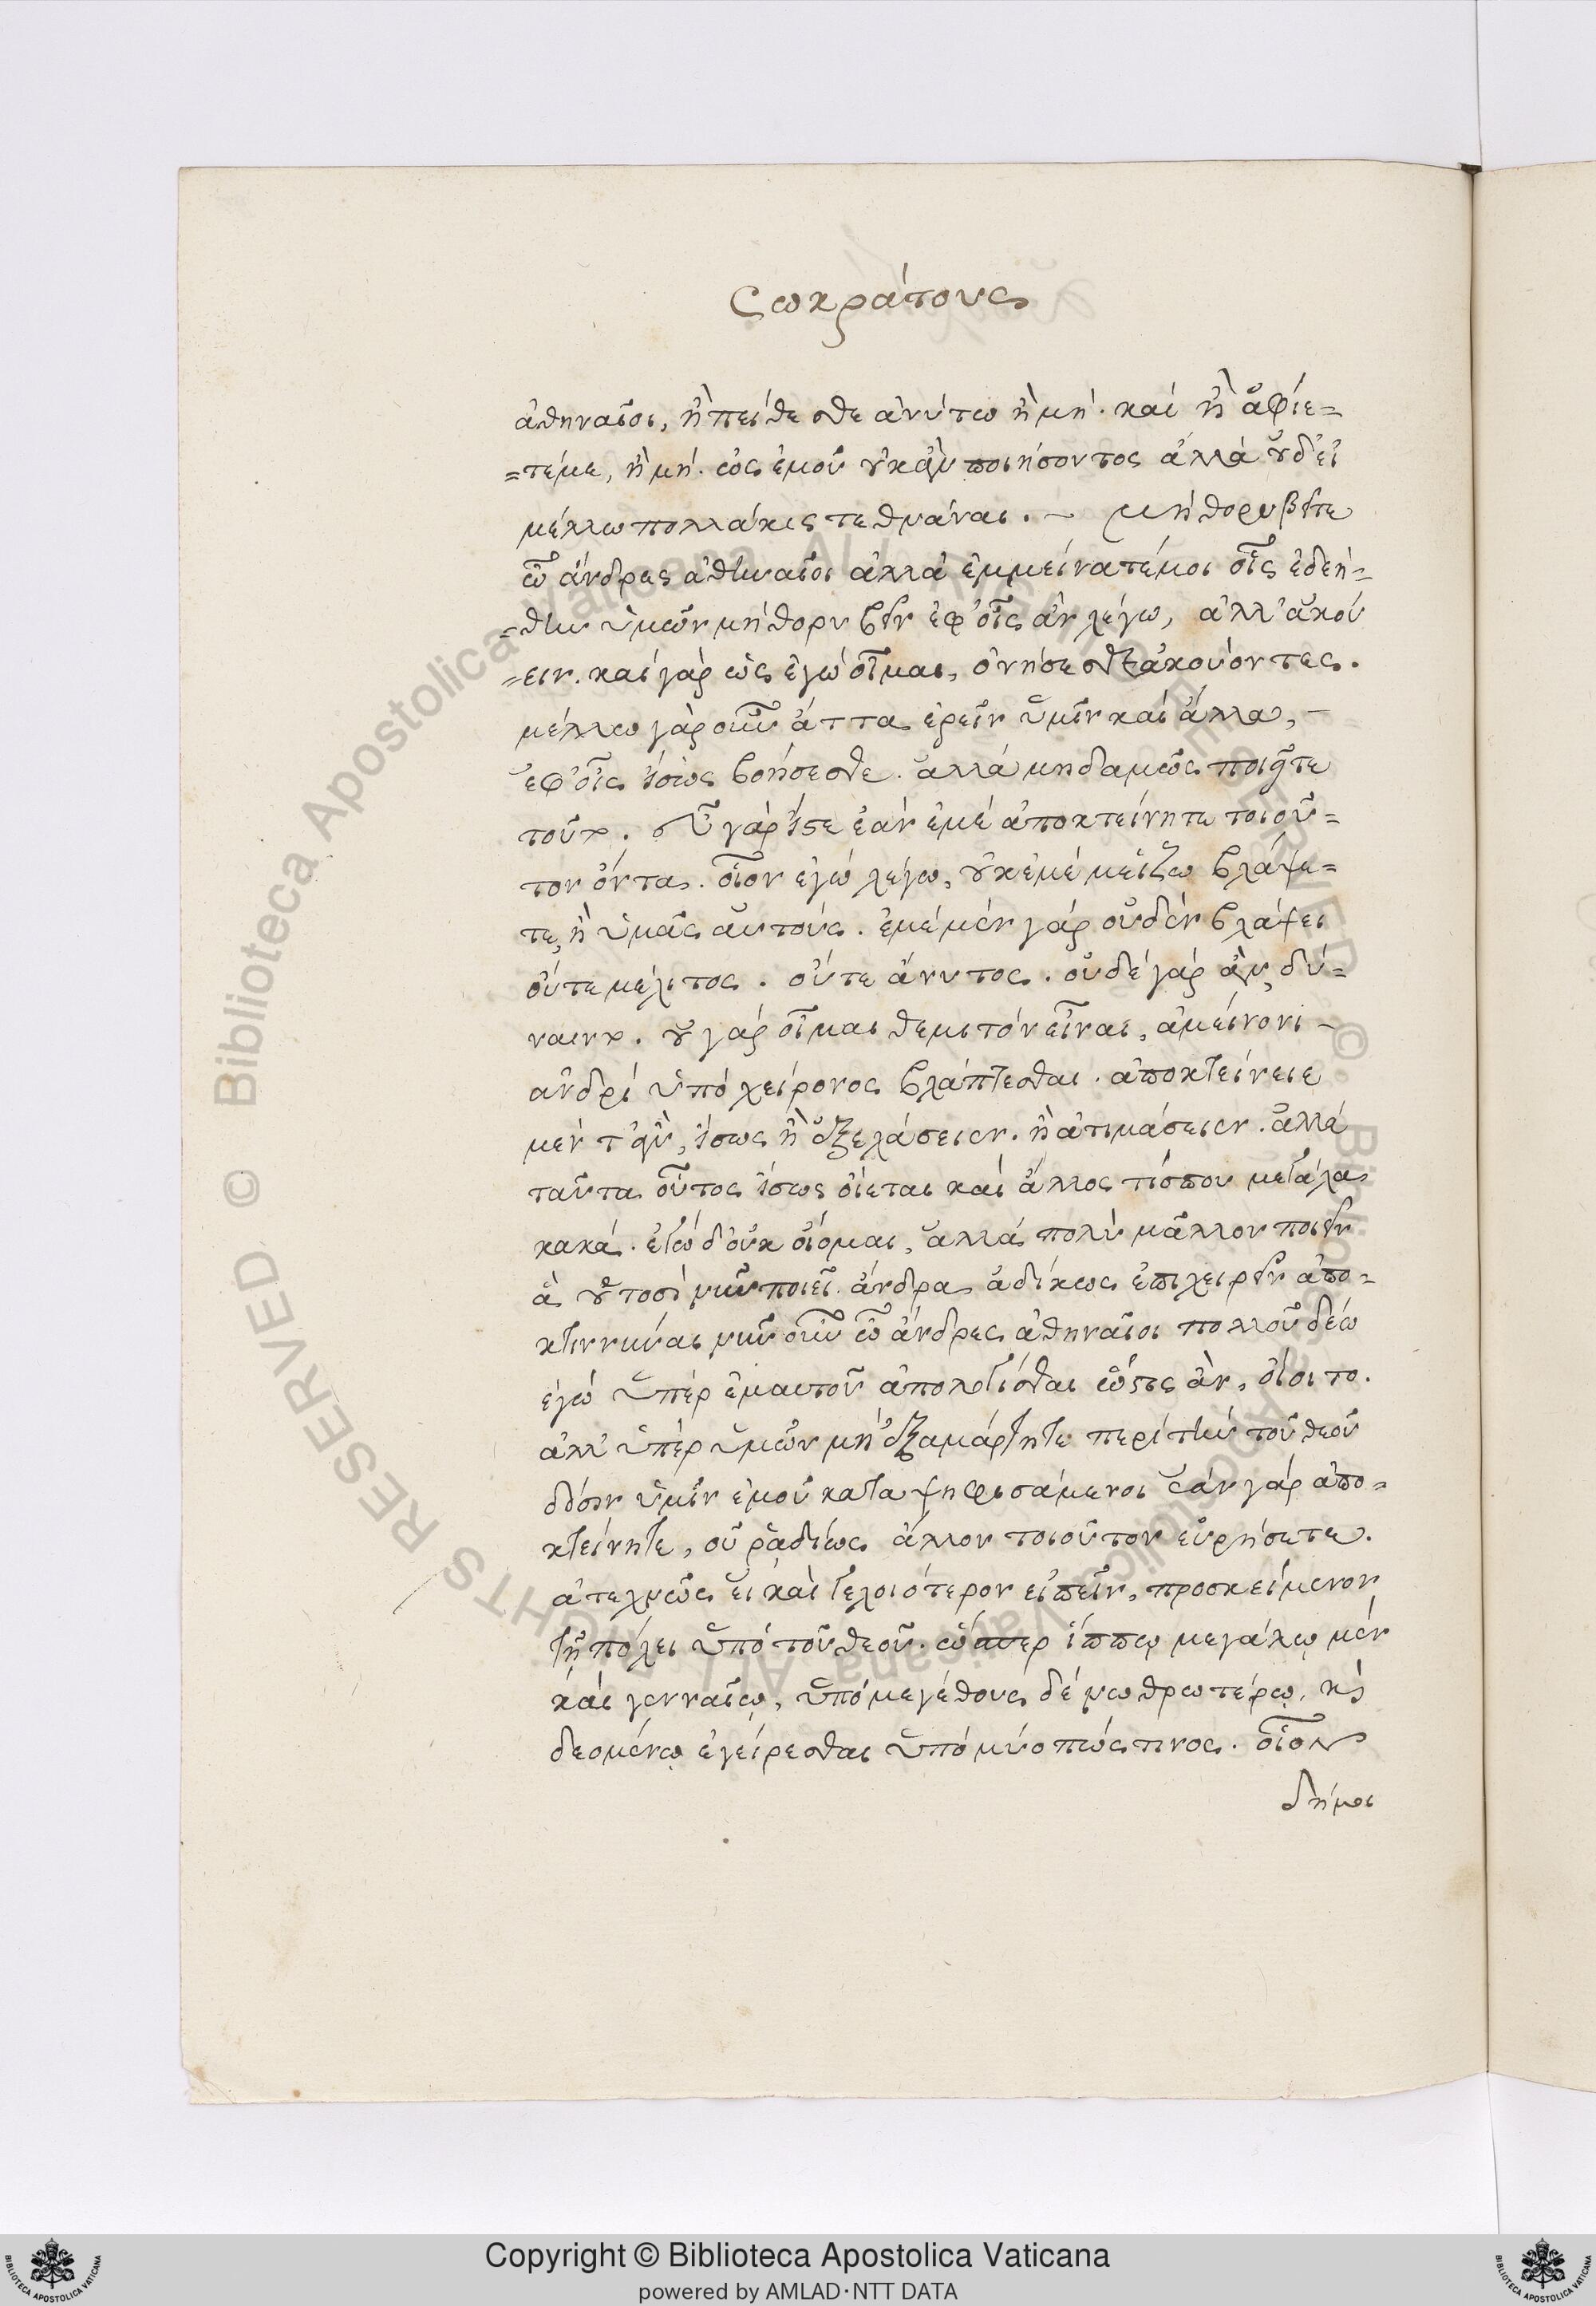 Σωκράτους
ἀθηναῖοι, ἢ πείθεσθε ἀνύτω ἢ μή. καί ἢ ἀφίε=
=τέμε, ἢ μή. ὡς ἐμοῦ οὐκ ἀν ποιήσοντος ἀλλὰ οὐδ' εἰ
μέλλω πολλάκις τεθνάναι. ~ Μή θορυβεῖτε
ὦ ἄνδρες ἀθηναῖοι ἀλλά ἐμμείνατέ μοι οἷς ἐδεή=
=θην ὑμῶν μή θορυβεῖν ἐφ' οἷς ἄν λέγω, ἀλλ' ἀκού
=ειν. καί γάρ ὡς ἐγώ οἶμαι, ὀνήσεσθε ἀκούοντες.
μέλλω γὰρ οὖν ἄττα ἐρεῖν ὑμῖν καὶ ἄλλα, ~
ἐφ' οἷς ἴσως βοήσεσθε. ἀλλά μηδαμῶς ποιεῖτε
τοῦτο. εὖ γάρ ἴστε ἐάν ἐμέ ἀποκτείνητε τοιοῦ=
τον ὄντα. οἷον ἐγώ λέγω, οὐκ ἐμέ μείζω βλάψε=
τε, ἢ ὑμᾶς αὐτούς. ἐμέ μέν γάρ οὐδέν βλάψει
οὔτε μέλιτος. οὔτε ἄνυτος. οὐδέ γάρ ἄν, δύ=
ναιντο. οὐ γάρ οἶμαι θεμιτόν εἶναι, ἀμείνονι ~
ἀνδρί ὑπό χείρονος βλάπτεσθαι. ἀποκτείνειε
μέν τἂν, ἴσως ἢ ἐξελάσειεν. ἢ ἀτιμάσειεν. ἀλλά
ταῦτα οὗτος ἴσως οἴεται καί ἄλλος τίς που μεγάλα
κακά. ἐγώ δ' οὐκ οἴομαι, ἀλλά πολύ μᾶλλον ποιεῖν
ἃ οὑτοσὶ νῦν ποιεῖ. ἄνδρα ἀδίκως ἐπιχειρεῖν ἀπο=
κτιννύναι νῦν οὖν ὦ ἄνδρες ἀθηναῖοι πολλοῦ δέω
ἐγώ ὑπέρ ἐμαυτοῦ ἀπολογεῖσθαι ὥς τις ἄν, οἴοιτο.
ἀλλ' ὑπέρ ὑμῶν μή ἐξαμάρτητε περί τήν τοῦ θεοῦ
δόσιν ὑμῖν ἐμοῦ καταψηφισάμενοι ἐάν γάρ ἀπο=
κτείνητε, οὐ ῥαδίως ἄλλον τοιοῦτον εὑρήσετε.
ἀτεχνῶς εἰ καὶ γελοιότερον εἰπεῖν, προσκείμενον
τῇ πόλει ὑπό τοῦ θεοῦ. ὥσπερ ἵππῳ μεγάλῳ μέν
καί γενναίῳ, ὑπό μεγέθους δέ νωθρωτέρῳ, καὶ
δεομένῳ ἐγείρεσθαι ὑπό μύοπώς τινος. οἷον
δήμοι